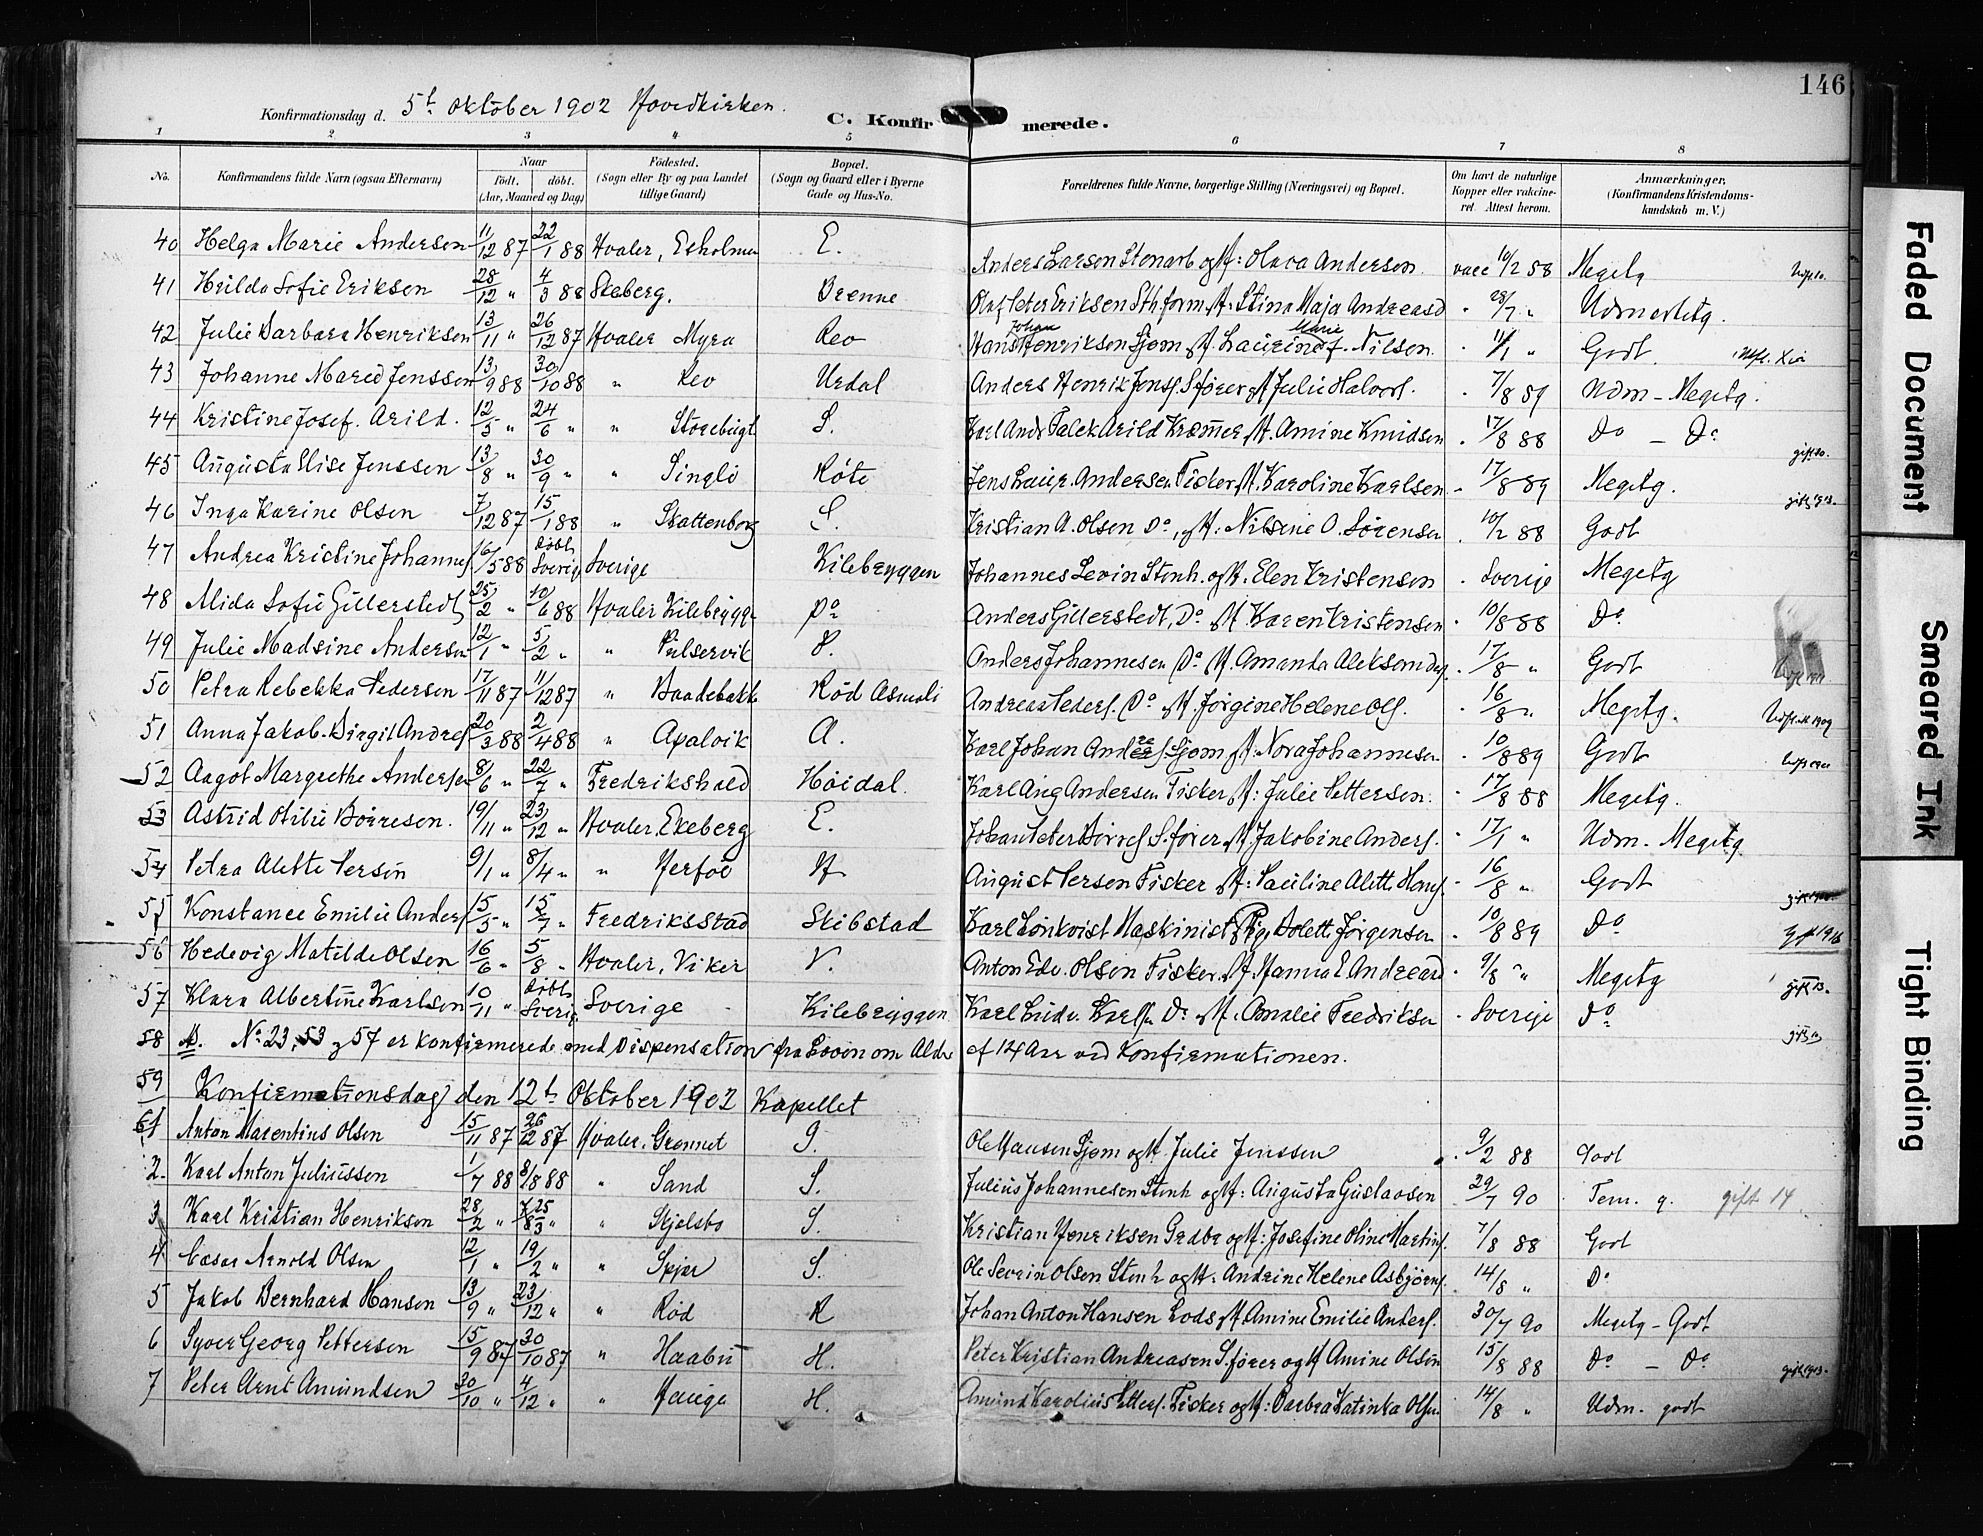 146
Konfirmationsdag d. 5t Oktober 1902 Hovedkirken.
C. Konfirmerede.
1 2 3 4 5 6 7 8
No. Konfirmandens fulde Navn (ogsaa Efternavn) Naar Födt. döbt. (Aar, Maaned og Dag) Födested. (Sogn eller By og paa Landet tillige Gaard) Bopæl. (Sogn og Gaard eller i Byerne Gade og Hus-No. Forældrenes fulde Navne, borgerlige Stilling (Næringsvei) og Bopæl. Om havt de naturlige Kopper eller vakcineret. Attest herom. Anmærkninger. (Konfirmandens Kristendomskundskab m. V.)
40 Helga Marie Andersen 11/12 87 22/1 88 Hvaler, Esholmen E. Anders Larsen Stenarb og H: Olava Andersen vacc 10/2 58 Megetg
41 Hilda Sofie Eriksen 28/12 " 4/3 88 Skeberg. Brenne Olaf Peter Eriksen Sth.form H. Stina Maja Andreasd " 28/7 " Udmerketg.
42 Julie Barbara Henriksen 13/11 " 26/12 87 Hvaler Myra Rev Hans Johan Henriksen Sjøm H. Laurine Marie f. Nilsen " 11/1 " Godt.
43 Johanne Mared Jenssen 13/9 88 30/10 88 " Rev Urdal Anders Henrik Jens. S.fører H Julie Halvors. " 7/8 89 Udm - Megetg.
44 Kristine Josef. Arild. 12/5 " 24/6 " " Storebugt S. Karl Andr Falck Arild Kræmmer H. Amine Knudsen " 17/8 88 Do - Do
45 Augusta Elise Jenssen 13/8 " 30/9 " " Singlö Röte Jens Laur. Andersen Fisker H. Karoline Karlsen " 17/8 89 Megetg.
46 Inga Karine Olsen 7/12 87 15/1 88 " Skattenborg S. Kristian A. Olsen Do, H: Nilsine O. Sörensen " 10/2 88 Godt
47 Andrea Kristine Johannes. 16/5 88 Døbt Sverig Sverige Kilebryggen Johannes Levin Stenh. og H. Elen Kristensen " Sverige Megetg
48 Alida Sofie Gillerstedt 25/2 " 10/6 88 Hvaler Kilebrygge Do Anders Gillerstedt, Do H Karen Kristensen " 10/8 88 Do
49 Julie Madsine Andersen 12/1 " 5/2 " " Pulservik P. Anders Johannesen Do H. Amanda Aleksandg. " 17/8 " Godt
50 Petra Rebekka Pedersen 17/11 87 11/12 87 " Baadebakk Röd Asmali Andreas Peders. Do H. Jørgine Helene Ols. " 16/8 " Megetg.
51 Anna Jakob. Birgit Andres 20/3 88 2/4 88 " Apalvik A. Karl Johan Andres. Sjøm H. Nora Johannesen " 10/8 89 Godt
52 Aagot Margrethe Andersen 8/6 " 22/7 " Fredrikshald Höidal. Karl Aug Andersen Fisker H: Julie Pettersen. " 17/8 88 Megetg.
53 Astrid Otilie Börresen. 19/11 " 23/12 " Hvaler, Ekeberg E. Johan Peter Börres S.fører H Jakobine Anders. " 17/1 " Udm. Megetg.
54 Petra Alette Persen 9/1 " 8/4 " " Herföl H August Persen Fisker H: Pauline Alett Hans. " 16/8 " Godt
55 Konstance Emilie Anders 15/5 " 15/7 " Fredriksstad Skibstad Karl Lönkvist Maskinist Pige Bolett Jörgensen " 10/8 89 Do gift 1916
56 Hedevig Matilde Olsen 16/6 " 5/8 " Hvaler, Viker V. Anton Edv. Olsen Fisker H. Hanna E Andreasd " 9/8 " Megetg gift 13.
57 Klara Albertine Karlsen 10/11 " Døbt Sverig. Sverige Kilebryggen Karl Ludv. Karls. Do H. Amalie Fredriksen " Sverige Do
58 NB. No 23, 53 og 57 er konfirmerede med Dispensation fra Loven om Alder af 14 Aar ved Konfirmationen.
59 Konfirmationsdag den 12t Oktober 1902 Kapellet
61 Anton Marentius Olsen 15/11 87 26/12 87 Hvaler. Grönnet G. Ole Hansen Sjøm og H Julie Jenssen " 9/2 88 Godt
2. Karl Anton Juliussen 1/7 88 8/8 88 " Sand S. Julius Johannesen Stenh og H: Augusta Gustavsen " 29/7 90 Tem. g. gift 14
3 Karl Kristian Henriksen 28/2 " 25/3 " " Skjelsbo S. Kristian Henriksen Grdbr og H: Josefine Oline Martins. 7/8 88 Godt
4. Cæsar Arnold Olsen 12/1 " 19/2 " " Spjær S. Ole Severin Olsen Stenh og H: Andrine Helene Asbjörns. 14/8 " Do
5 Jakob Bernhard Hansen 13/9 " 23/12 " " Röd R Johan Anton Hansen Lods H Amine Emilie Anders. 30/7 90 Megetg - Godt
6 Syver Georg Pettersen 15/9 87 30/10 87 " Haabu H. Peter Kristian Andreasen S.fører og H Amine Olsen 15/8 88 Do - Do gift 1913.
7 Peter Arnt Amundsen 30/10 " 4/12 " " Hauge H. Amund Karolius Petters. Fisker og H: Barbra Katinka Olsen 14/8 " Udm. godt
Faded Document
Smeared Ink
Tight Binding